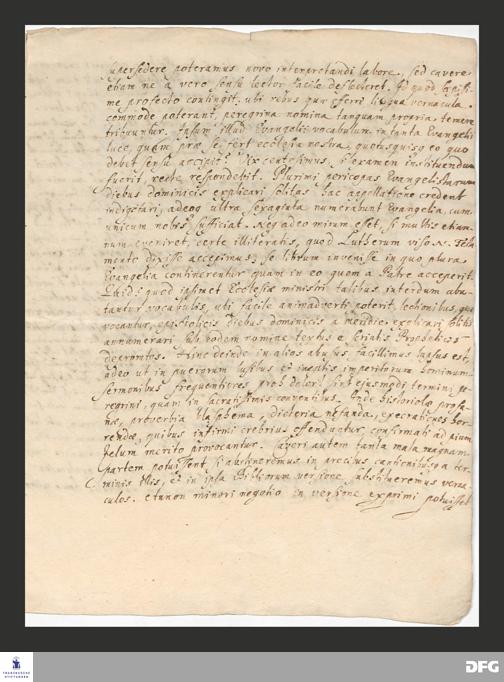 supersedere poteramus novo interpretandi labore, sed cavere
etiam ne a vero sensu lector facile deflecteret. Id quod sæpissi-
me profecto contingit, ubi rebus quæ efferri lingua vernacula
commode poterant, peregrina nomina tanquam propria temere
tribuuntur. Ipsum illud Evangelii vocabulum in tanta Evangelii
luce, quam præ se fert ecclesia nostra, quotusquisq eo quo
debet sensu accipit? Vix centesimus, si examen instituendum
fuerit, recte respondebit. Plurimi pericopas Evangelistarum
diebus dominicis explicari solitas hac appellatione credent
indigitari, adeoq ultra sexaginta numerabunt Evangelia, cum
unicum nobis sufficiat. Neq adeo mirum esset, si multis etiam
num eveniret, certe illiteratis, quod Lutherum viso N. Testa
mento dixisse accepimus, se librum invenisse in quo plura
Evangelia continerentur quam in eo quem a Patre acceperit.
Quid? quod ipsimet Ecclesiæ ministri talibus interdum abu
tantur vocabulis, uti facile animadverti poterit, lectionibus, quæ
vocantur, epistolicis diebus dominicis a meridie explicari solitis
annumerari sub eodem nomine textus e scriptis Propheticis
Hinc deinde in alios abusus facillimus lapsus est,
adeo ut in puerorum lusibus et ineptis imperitorum hominum
sermonibus frequentiores, proh dolor! sint ejusmodi termini pe-
regrini, quam in sacratissimis conventibus. Inde historiolæ profa-
næ, proverbia blasphema, dicteria nefanda, execrationes hor-
rendæ, quibus infirmi crebrius offenduntur confirmati ad pium
zelum merito provocantur. Caveri autem tanta mala magnam
partem potuissent, si abstineremus in precibus cantionibusq a ter-
minis illis, et in ipsa Bibliorum versione substitueremus verna
culos. etenim non minori negotio in versione exprimi potuisset
TRANSKRIBUS STIFTUNGEN
DFG